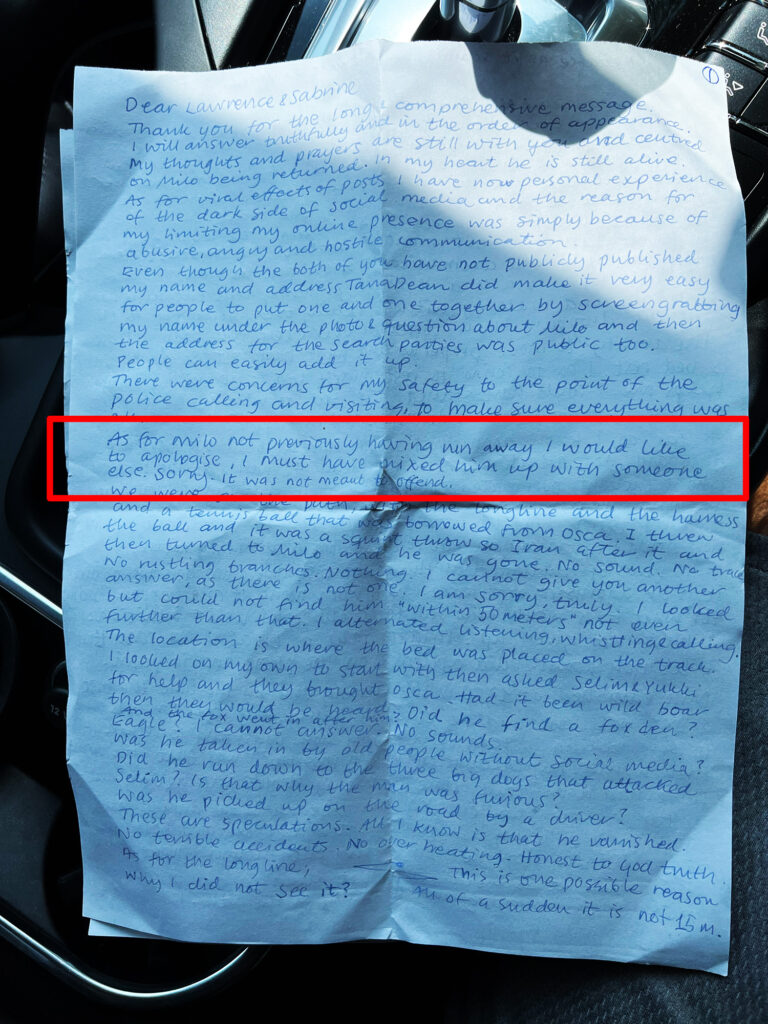 ①
Dear Lawrence & Sabrine
Thank you for the long & comprehensive message.
I will answer truthfully and in the order of appearance.
My thoughts and prayers are still with you and centred
on Milo being returned. In my heart he is still alive.
As for viral effects of posts I have now personal experience
of the dark side of social media and the reason for
my limiting my online presence was simply because of
abusive, angry and hostile communication.
Even though the both of you have not publicly published
my name and address Tana Dean did make it very easy
for people to put one and one together by screengrabbing
my name under the photo & question about Milo and then
the address for the search parties was public too.
People can easily add it up.
There were concerns for my safety to the point of the
police calling and visiting, to make sure everything was
As for Milo not previously having run away I would like
to apologise, I must have mixed him up with someone
else. Sorry. It was not meant to offend.
We were on the path, the longline and the harness
and a tennis ball that was borrowed from Osca. I threw
the ball and it was a squint throw so I ran after it and
then turned to Milo and he was gone. No sound. No trace
No rustling branches. Nothing. I cannot give you another
answer, as there is not one. I am sorry, truly. I looked
but could not find him "within 50 meters" not even
further than that. I alternated listening, whistling & calling.
The location is where the bed was placed on the track.
I looked on my own to start with then asked Selim & Yukki
for help and they brought Osca. Had it been wild boar
then they would be heard. Did he find a fox den?
And the fox went in after him?
Eagle? I cannot answer. No sounds.
Was he taken in by old people without social media?
Did he run down to the three big dogs that attacked
Selim? Is that why the man was furious?
Was he picked up on the road by a driver?
These are speculations. All I know is that he vanished.
No terrible accidents. No over heating. Honest to God truth.
As for the longline,
This is one possible reason
Why I did not see it?
All of a sudden it is not 15 m.